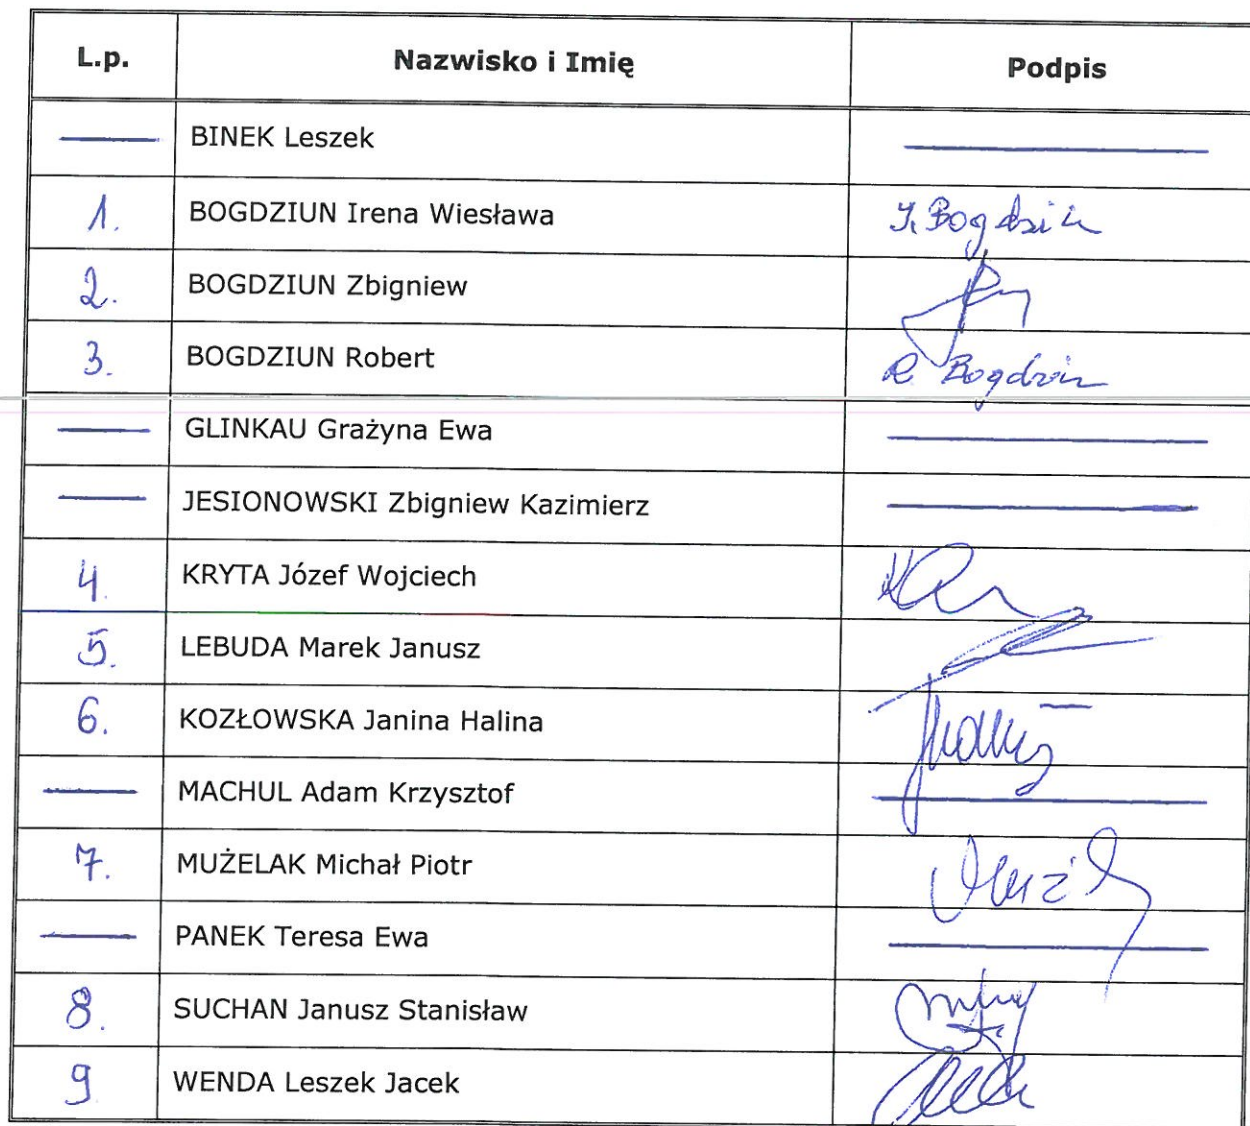 L.p. Nazwisko i Imię Podpis
BINEK Leszek
1. BOGDZIUN Irena Wiesława I. Bogdziun
2. BOGDZIUN Zbigniew
3. BOGDZIUN Robert R. Bogdziun
GLINKAU Grażyna Ewa
JESIONOWSKI Zbigniew Kazimierz
4. KRYTA Józef Wojciech
5. LEBUDA Marek Janusz
6. KOZŁOWSKA Janina Halina
MACHUL Adam Krzysztof
7. MUŻELAK Michał Piotr
PANEK Teresa Ewa
8. SUCHAN Janusz Stanisław
9 WENDA Leszek Jacek